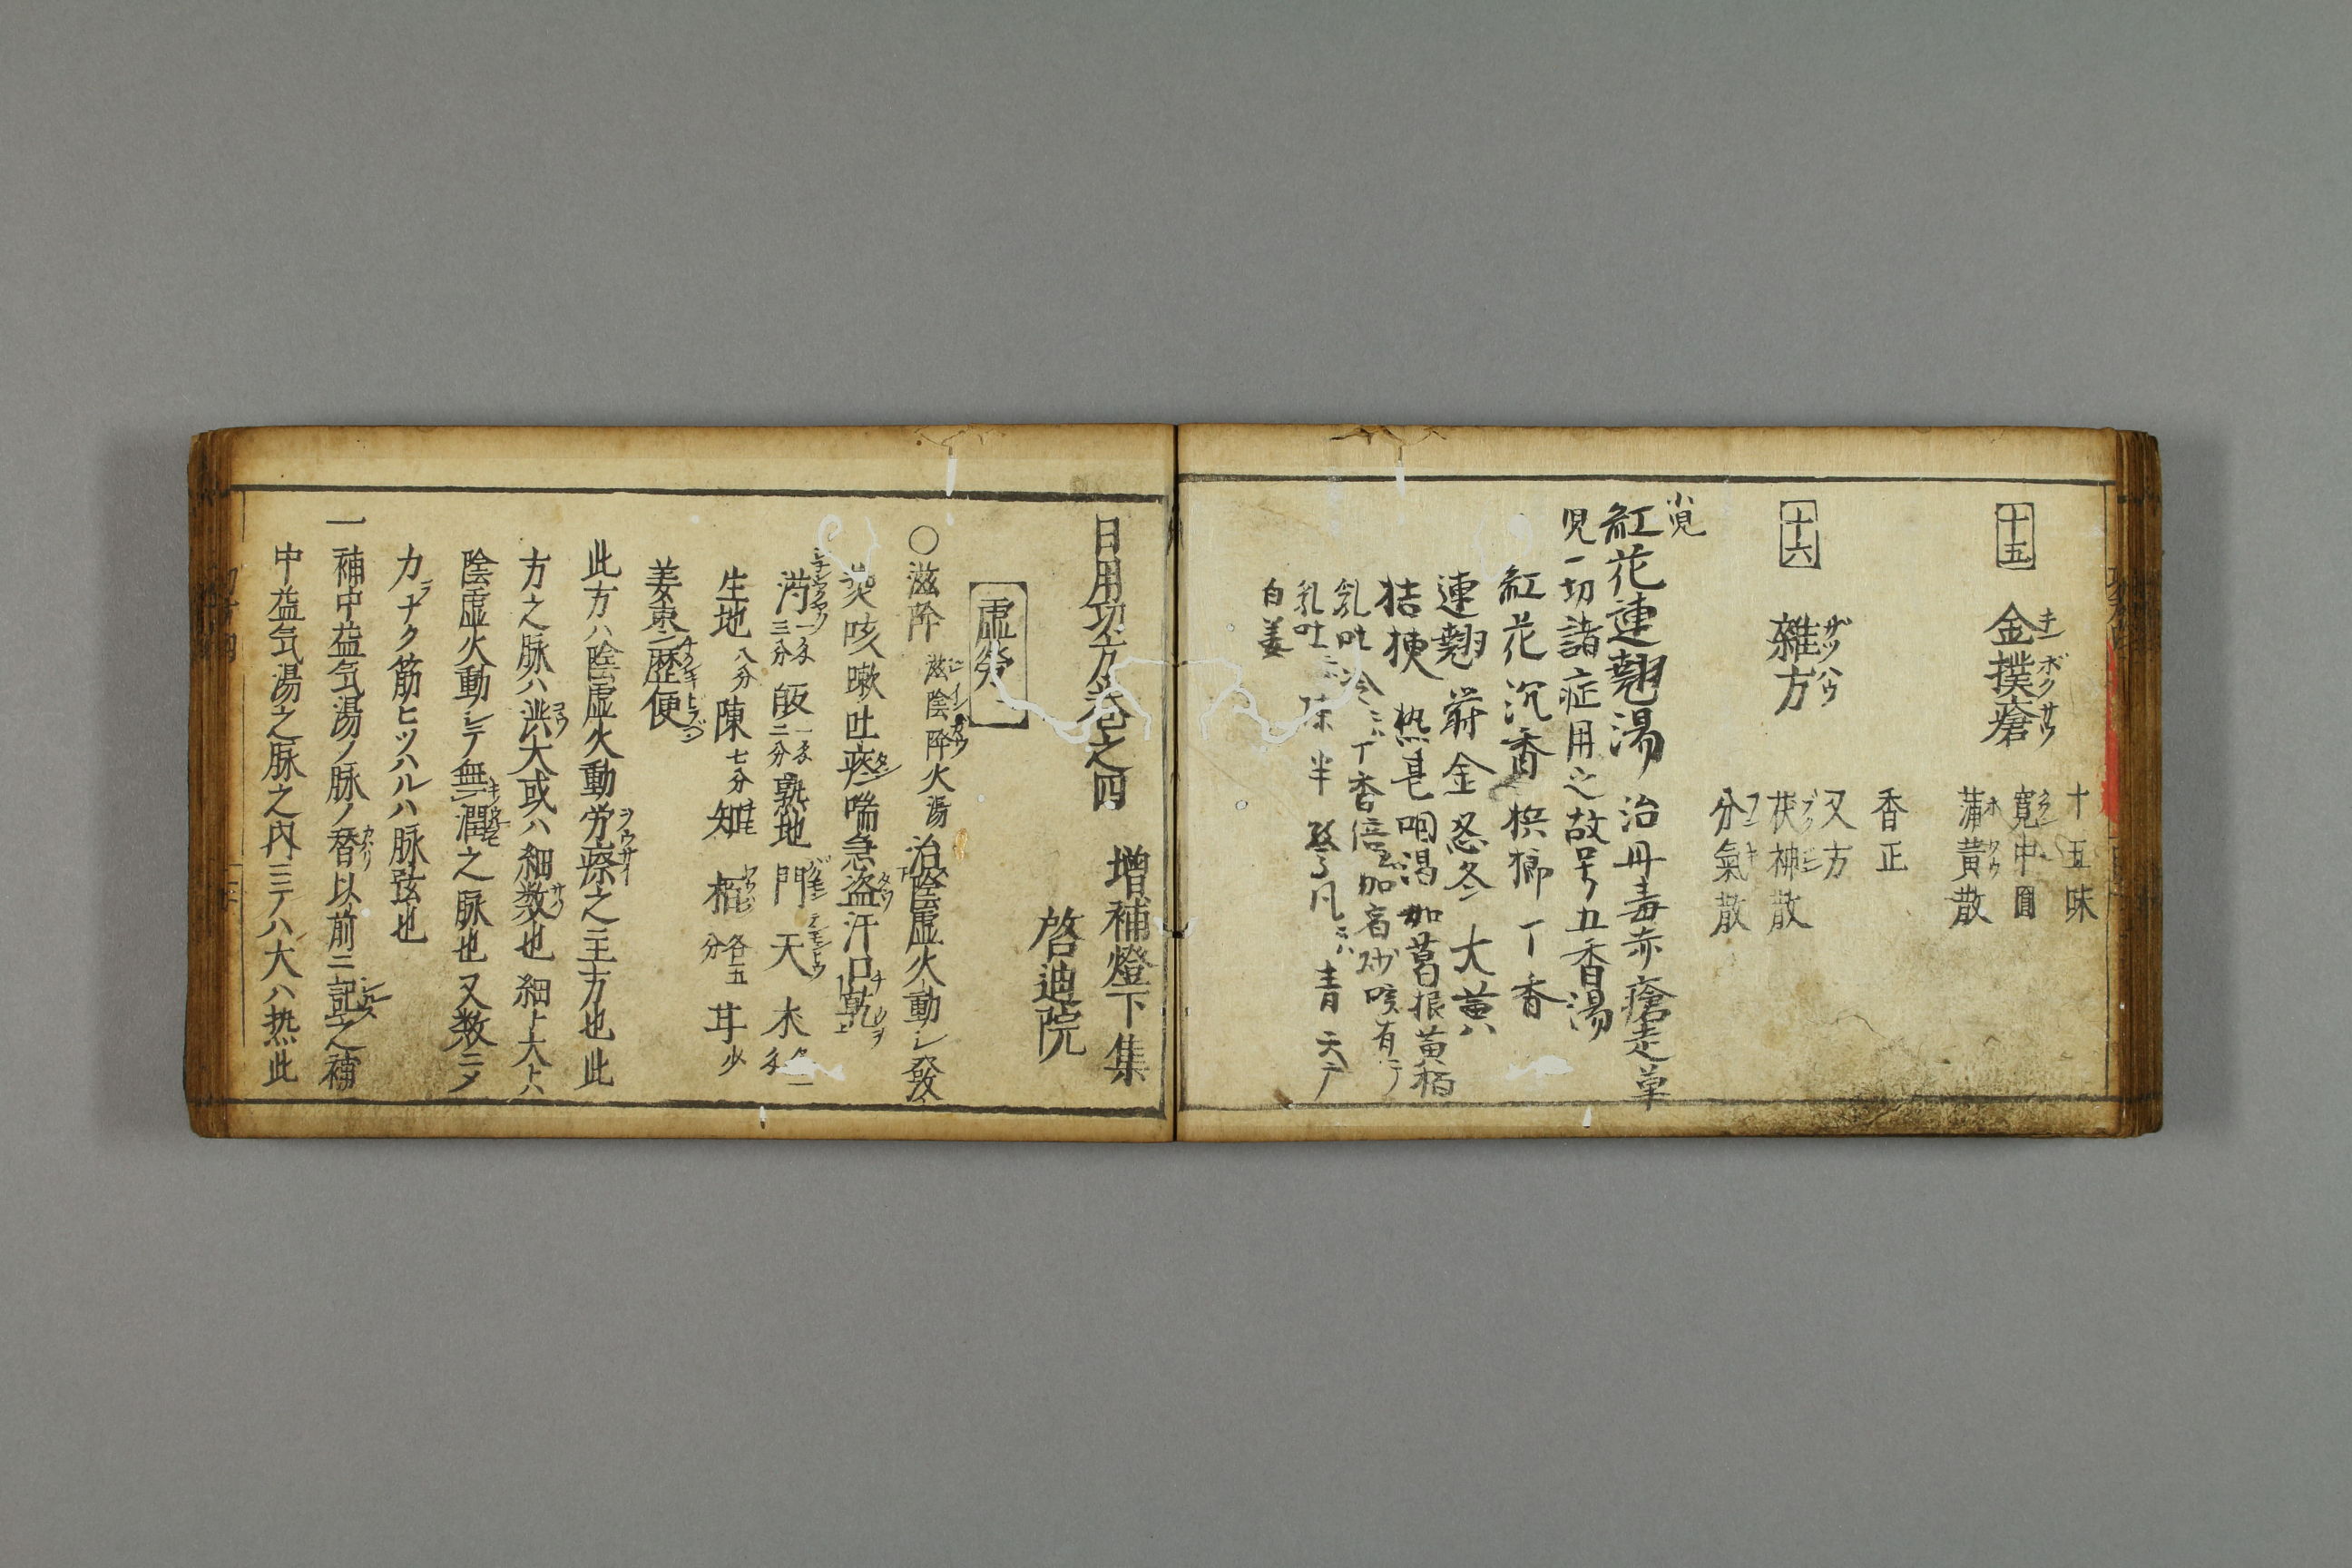 十五
金撲瘡
キンボクサウ
十五味
寛中圓
蒲黄散
香正
十六
雜方
ザツハウ
又方
茯神散
分氣散
小児
紅花連翹湯 治丹毒赤瘡走単
児一切諸症用之故号五香湯
紅花沉香 檳榔 丁香
連翹 欝金 忍冬 大黄
桔梗 热甚咽渇加葛根黄栢
乳吐冷 丁香倍 加宿砂 咳有
乳吐 陳半 凡 青
白姜
日用切方巻之四 増補燈下集
啓迪院
虚労一
○滋降 滋陰降火湯 治陰虚火動シ發
热咳嗽吐痰喘急盗汗口乾
芍一戔三分 皈一戔二分 熟地 門 天 朮
生地八分 陳七分 知 栢各五分 甘少
姜棗ニ歴便
此方ハ陰虚火動労瘵之主方也此
方之脉ハ洪大或ハ細数也細ト大トハ
陰虚火動シテ無潤之脉也又数ニメ
力ナク筋ヒツハルハ脉弦也
一補中益気湯ノ脉ノ替以前ニ記之補
中益気湯之脉之内ニテハ大ハ热此